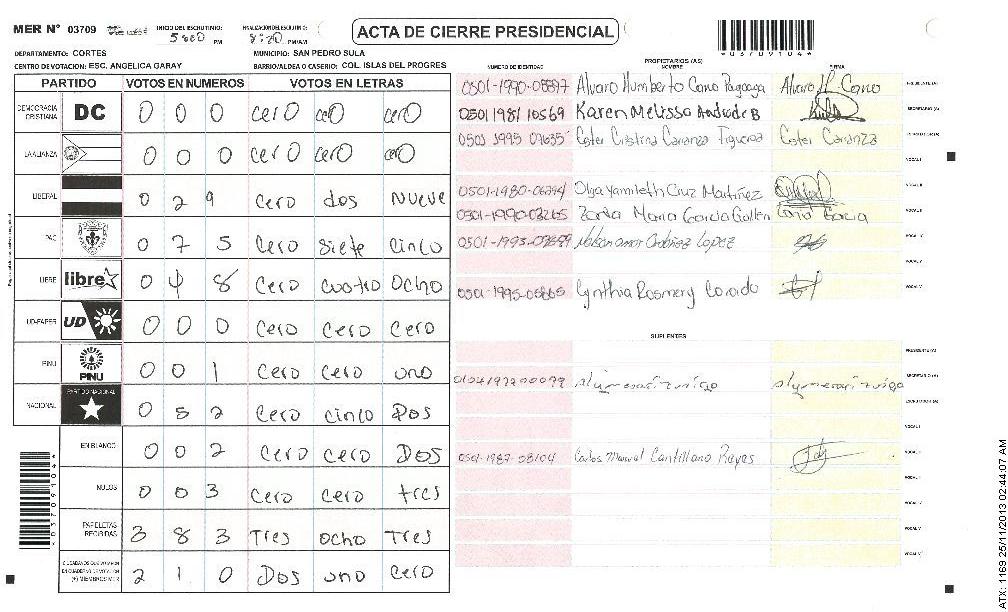 MER Nº 03709 INICIO DEL ESCRUTINIO: 5:00 PM FINALIZACION DEL ESCRUTINIO: 8:20 PM/AM ACTA DE CIERRE PRESIDENCIAL
DEPARTAMENTO: CORTES MUNICIPIO: SAN PEDRO SULA
CENTRO DE VOTACION: ESC. ANGELICA GARAY BARRIO/ALDEA O CASERIO: COL. ISLAS DEL PROGRES
PARTIDO VOTOS EN NUMEROS VOTOS EN LETRAS
DEMOCRACIA CRISTIANA DC 0 0 0 cero cero cero
LA ALIANZA 0 0 0 cero cero cero
LIBERAL 0 2 9 Cero dos nueve
PAC 0 7 5 Cero siete cinco
LIBRE libre 0 4 8 Cero cuatro Ocho
UD-FAPER UD 0 0 0 Cero Cero Cero
PINU PINU 0 0 1 Cero Cero uno
NACIONAL PARTIDO NACIONAL 0 5 2 Cero cinco Dos
EN BLANCO 0 0 2 Cero cero Dos
NULOS 0 0 3 cero cero tres
PAPELETAS RECIBIDAS 3 8 3 Tres ocho Tres
CIUDADANOS QUE VOTARON EN CUADERNO DE VOTACION (+) MIEMBROS MER 2 1 0 Dos uno cero
*03709104*
PROPIETARIOS (AS)
NUMERO DE IDENTIDAD NOMBRE FIRMA
0501-1990-08897 Alvaro Humberto Cano Alvaro H. Cano PRESIDENTE (A)
0501 1981 10569 Karen Melissa Andrade B SECRETARIO (A)
0503 1995 Ester Cristina Carranza Figueroa Ester Carranza ESCRUTADOR (A)
VOCAL I
0501-1980-06294 Olga Yamileth Cruz Martinez VOCAL II
0501-1990-03265 Maria Garcia Garcia
0501-1993- Lopez
0501-1995-05865 Cynthia Rosmery
SUPLENTES
PRESIDENTE (A)
SECRETARIO (A)
ESCRUTADOR (A)
VOCAL I
0501-1987-08104 Carlos Manuel Cantillano Reyes
VOCAL V
*03709104*
ATX: 1169 25/11/2013 02:44:07 AM